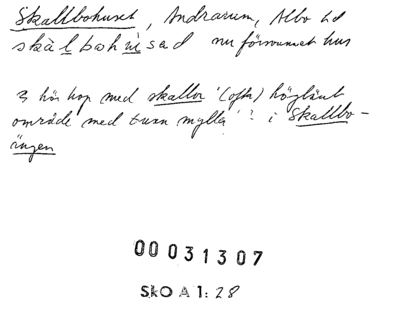 Skallbohuset, Andrarum, Albo hd
skàlbohúsəd nu försvunnet hus
hör hop med skalla '(ofta) högländt
område med tunn mylla' ? i Skallbo-
ängen
00 031307
SKO A 1: 28